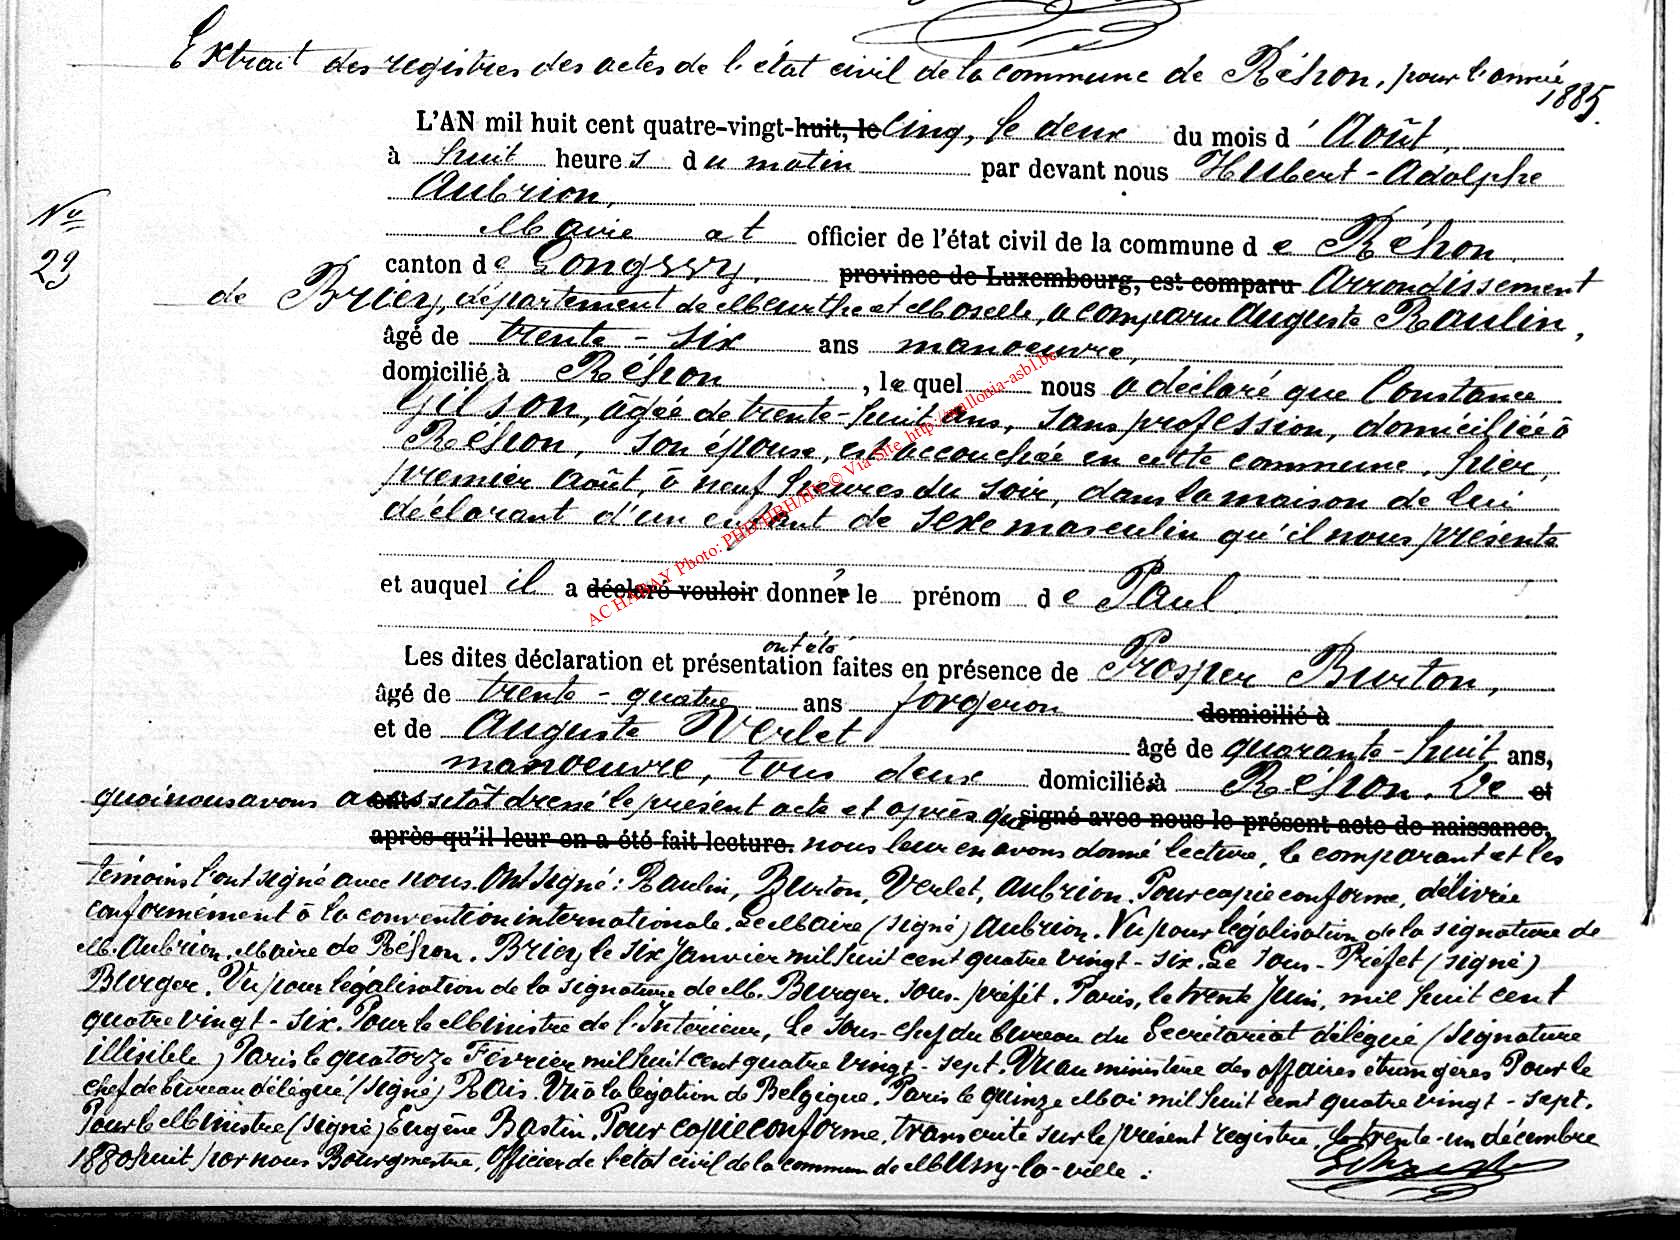 Extrait des registres des actes de l'état civil de la commune de Réhon, pour l'année
1885.
L'AN mil huit cent quatre-vingt-huit, le cinq, le deux du mois d' Août,
à huit heures du matin par devant nous Hubert-Adolphe
Aubrion,
Nº
29
Maire et officier de l'état civil de la commune de Réhon
canton de Longwy, province de Luxembourg, est comparu Arrondissement
de Briey, département de Meurthe et Moselle, a comparu Auguste Raulin,
âgé de trente-six ans manoeuvre,
domicilié à Réhon, lequel nous a déclaré que Constance
Gilson, âgée de trente-huit ans, sans profession, domiciliée à
Réhon, son épouse, est accouchée en cette commune, hier,
premier août, à neuf heures du soir, dans la maison de lui
déclarant d'un enfant de sexe masculin qu'il nous présente
et auquel il a déclaré vouloir donner le prénom de Paul.
ont été
Les dites déclaration et présentation faites en présence de Prosper Burton,
âgé de trente-quatre ans forgeron domicilié à
et de Auguste Verlet âgé de quarante-huit ans,
manoeuvre, tous deux domiciliés à Réhon. De et
quoi nous avons aussitôt dressé le présent acte et après que signé avec nous le présent acte de naissance,
après qu'il leur en a été fait lecture. nous leur en avons donné lecture, le comparant et les
témoins l'ont signé avec nous. Ont signé: Raulin, Burton, Verlet, Aubrion. Pour copie conforme, délivrée
conformément à la convention internationale. Le Maire (signé) Aubrion. Vu pour légalisation de la signature de
M. Aubrion, Maire de Réhon. Briey le six Janvier mil huit cent quatre vingt-six. Le Sous-Préfet (signé)
Burger. Vu pour légalisation de la signature de M. Burger. Sous-préfet. Paris, le trente Juin, mil huit cent
quatre vingt-six. Pour le Ministre de l'Intérieur, Le Sous-chef du bureau du Secrétariat délégué (signature
illisible) Paris le quatorze Février mil huit cent quatre vingt-sept. Vu au ministère des affaires étrangères Pour le
chef de bureau délégué (signé) Rais. Vu à la légation de Belgique. Paris le quinze Mai mil huit cent quatre vingt-sept.
Pour le Ministre (signé) Eugène Bastin. Pour copie conforme, transcrite sur le présent registre, le trente-un décembre
1880huit par nous Bourgmestre, Officier de l'état civil de la commune de Mussy-la-ville:
AC HABAY Photo: PHD/HBH/HV © Via Site http://wallonia-asbl.be